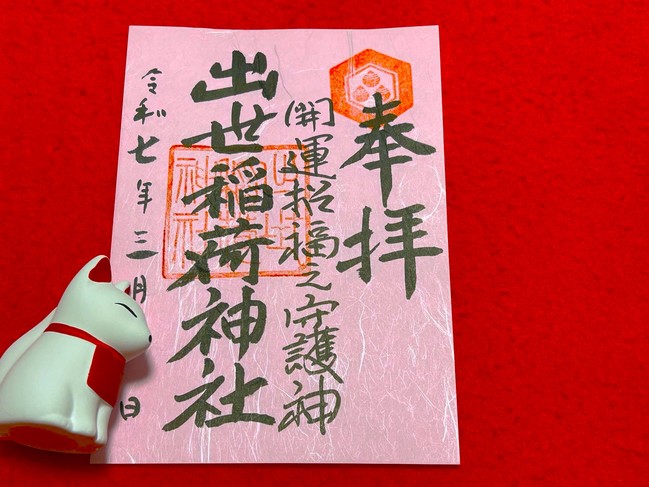 奉拝
開運招福之守護神
出世稲荷神社
令和七年三月
日